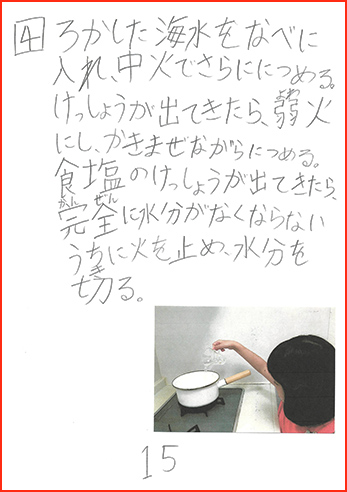 4 ろかした海水をなべに
入れ、中火でさらににつめる。
けっしょうが出てきたら、弱火
にし、かきまぜながらにつめる。
食塩のけっしょうが出てきたら、
完全に水分がなくならない
うちに火を止め、水分を
切る。
15